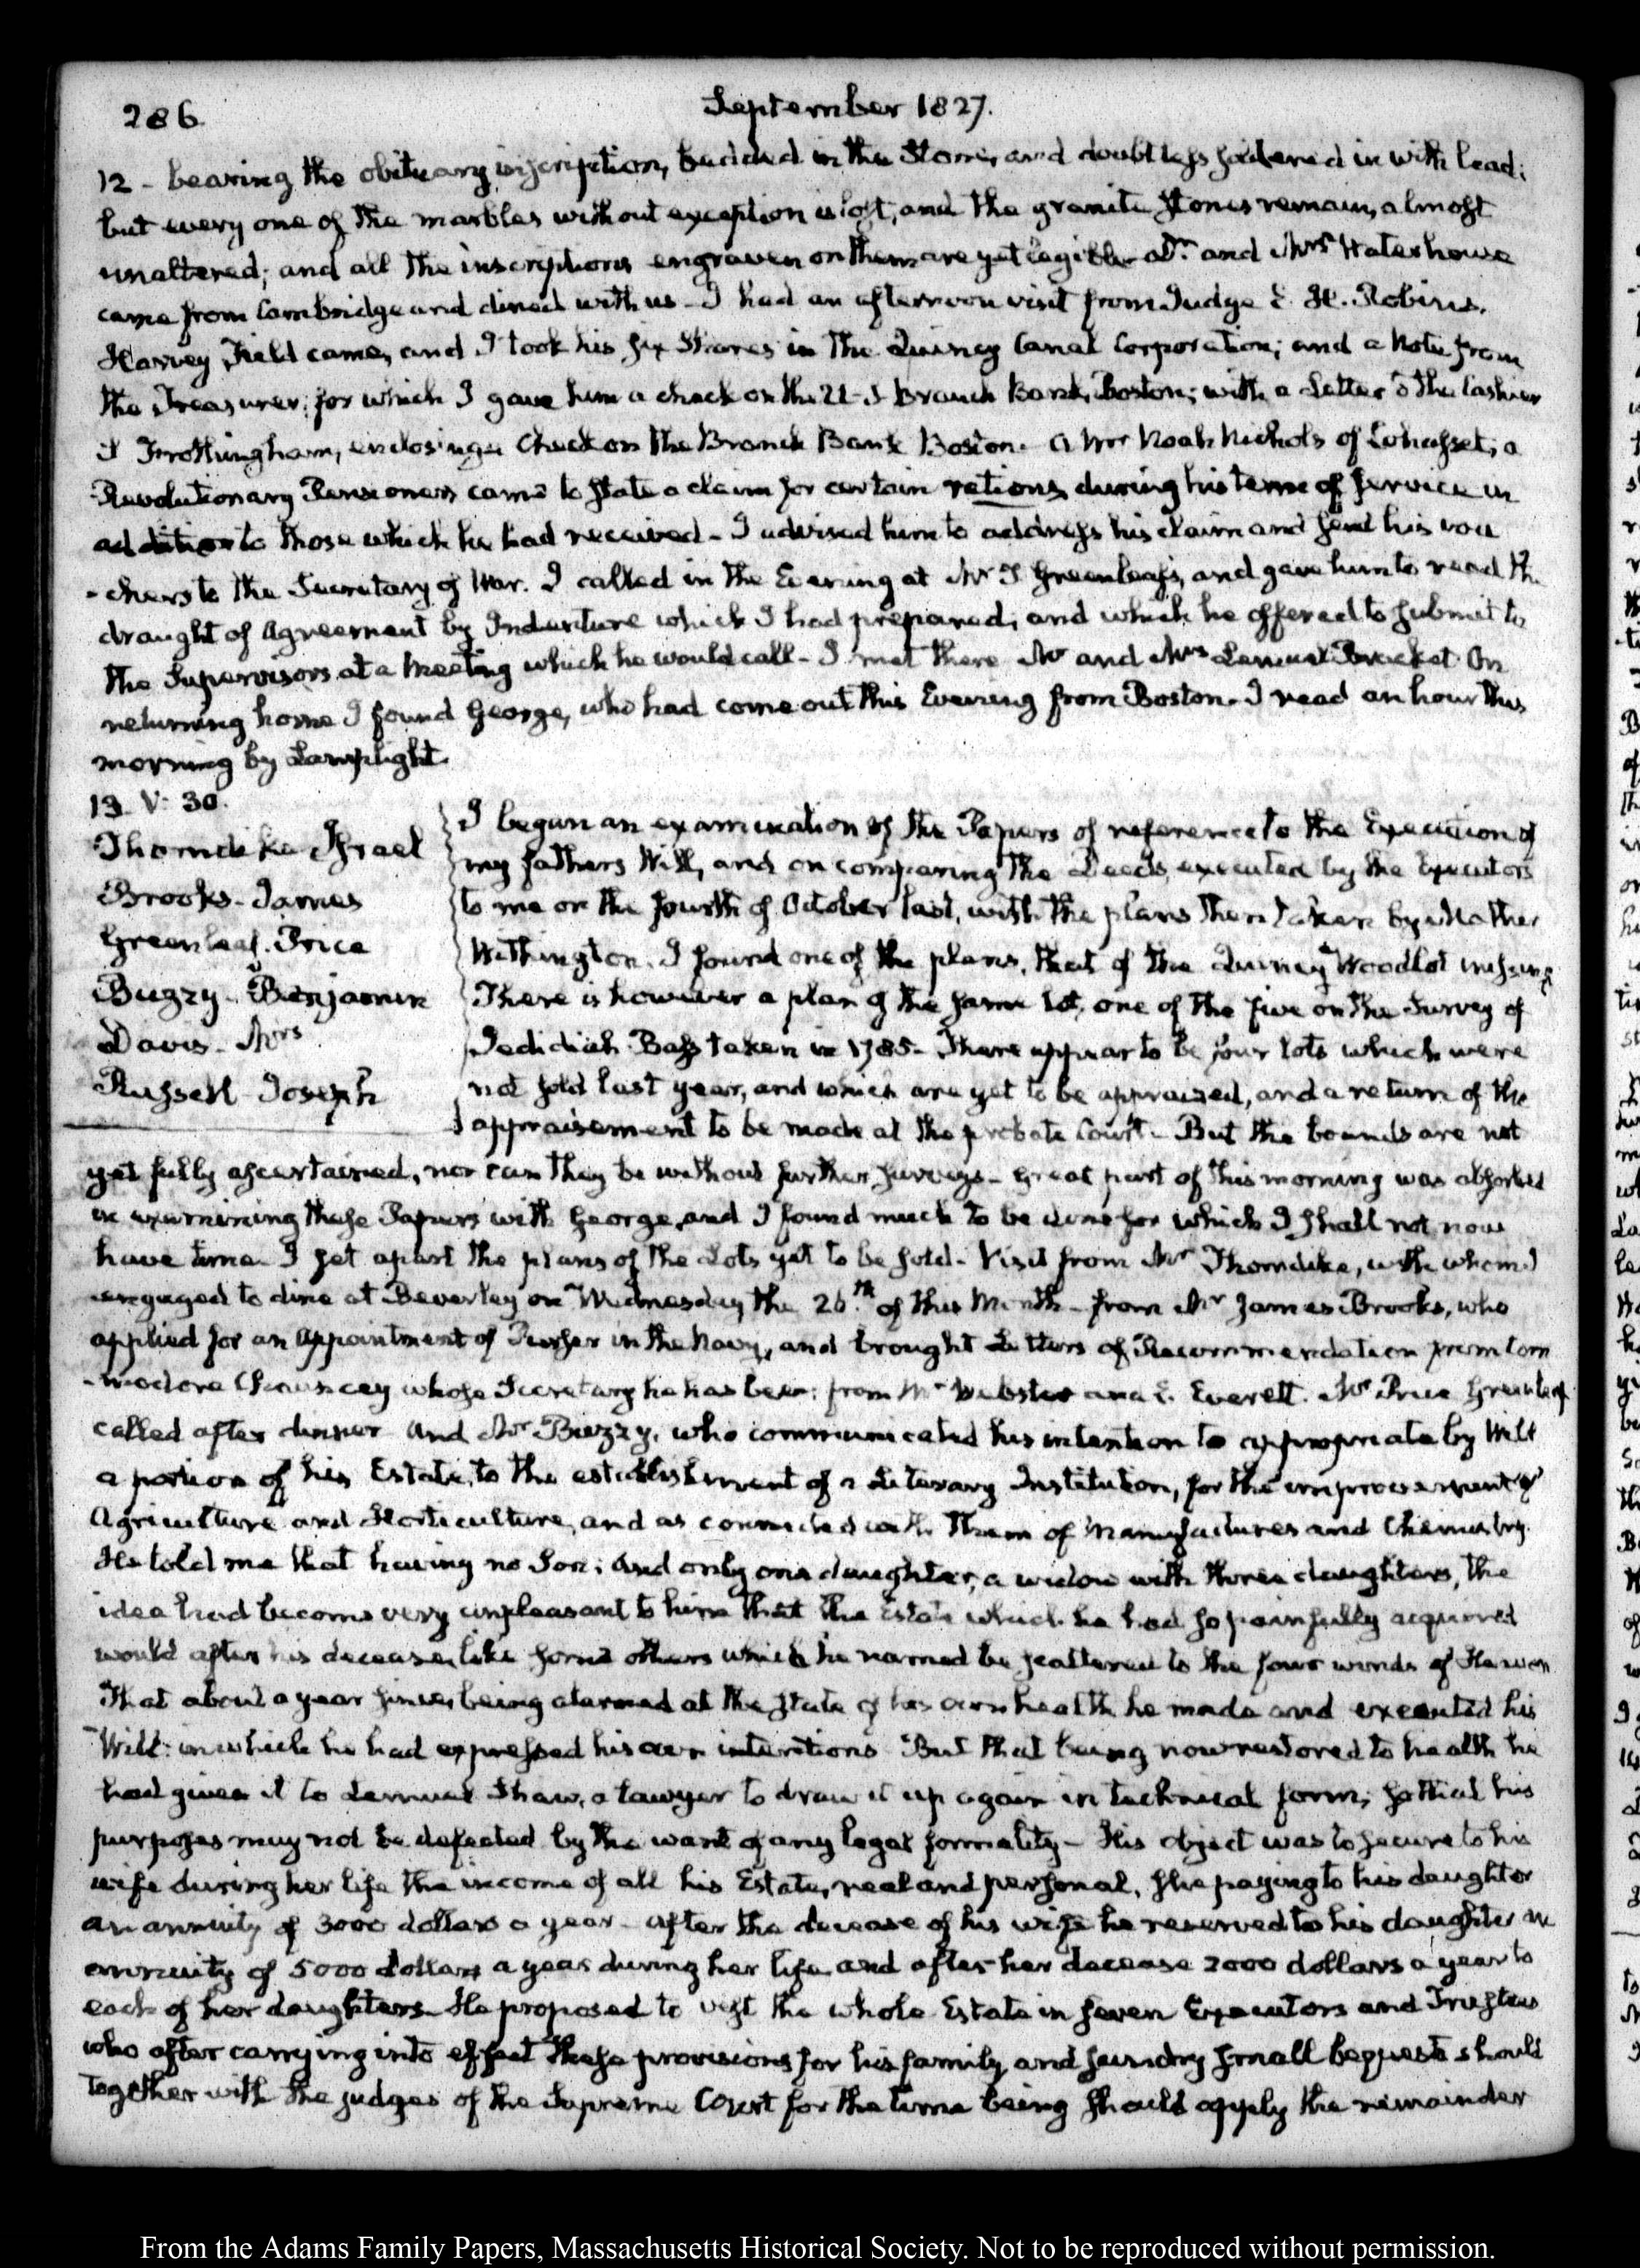 286
September 1827.
12 - bearing the obituary inscription, bedded in the Stone, and doubtless soldered in with lead:
but every one of the marbles without exception is lost, and the granite stones remain, almost
unaltered; and all the inscriptions engraven on them are yet legible - Dr. and Mrs Waterhouse
came from Cambridge and dined with us - I had an afternoon visit from Judge E. H. Robins.
Harvey Field came, and I took his six Shares in the Quincy Canal Corporation; and a Note from
the Treasurer; for which I gave him a check on the U.S. Branch Bank, Boston; with a Letter to the Cashier
S Frothingham, enclosing a Check on the Branch Bank Boston. A Mr Noah Nichols of Cohasset, a
Revolutionary Pensioner, came to state a claim for certain rations during his term of service in
addition to those which he had received - I advised him to address his claim and send his vou
-chers to the Secretary of War. I called in the Evening at Mr T. Greenleaf's, and gave him to read the
draught of Agreement by Indenture which I had prepared, and which he offered to submit to
the Supervisors at a Meeting which he would call - I met there Mr and Mrs Lemuel Bracket. On
returning home I found George, who had come out this Evening from Boston. I read an hour this
morning by Lamplight.
13. V: 30.
Thorndike Israel
Brooks. James
Greenleaf. Price
Bugzy. Benjamin
Davis. Mrs
Russell Joseph
I began an examination of the Papers of reference to the Execution of
my father's Will, and on comparing the Deeds, executed by the Executors
to me on the fourth of October last, with the plans then taken by Mather
Withington. I found one of the plans, that of the Quincy Woodlot missing
There is however a plan of the same lot, one of the five on the Survey of
Jedidiah Bass taken in 1785. There appear to be four lots which were
not sold last year, and which are yet to be appraised, and a return of the
appraisement to be made at the probate Court - But the bounds are not
yet fully ascertained, nor can they be without further surveys - Great part of this morning was absorbed
in examining these Papers with George, and I found much to be done for which I shall not now
have time. I set apart the plans of the Lots yet to be sold - Visit from Mr Thorndike, with whom I
engaged to dine at Beverley on Wednesday the 26.th of this Month - from Mr James Brooks, who
applied for an Appointment of Purser in the Navy, and brought Letters of Recommendation from Com
-modore Chauncey whose Secretary he has been; from Mr Webster and E. Everett. Mr Price Greenleaf
called after dinner and Mr Buzzy, who communicated his intention to appropriate by Will
a portion of his Estate, to the establishment of a Literary Institution, for the improvement of
Agriculture and Horticulture, and as connected with them of Manufactures and Chemistry.
He told me that having no Son; and only one daughter, a widow with three daughters, the
idea had become very unpleasant to him that the Estate which he had so painfully acquired
would after his decease, like some others which he named be scattered to the four winds of Heaven
That about a year since, being alarmed at the state of his own health he made and executed his
Will: in which he had expressed his own intentions But that being now restored to health he
had given it to Lemuel Shaw, a lawyer to draw it up again in technical form, so that his
purposes may not be defeated by the want of any legal formality - His object was to secure to his
wife during her life the income of all his Estate, real and personal, she paying to his daughter
an annuity of 3000 dollars a year - after the decease of his wife he reserved to his daughter an
annuity of 5000 dollars a year during her life and after her decease 2000 dollars a year to
each of her daughters. He proposed to vest the whole Estate in seven Executors and Trustees
who after carrying into effect these provisions for his family and sundry small bequests should
together with the judges of the Supreme Court for the time being should apply the remainder
From the Adams Family Papers, Massachusetts Historical Society. Not to be reproduced without permission.